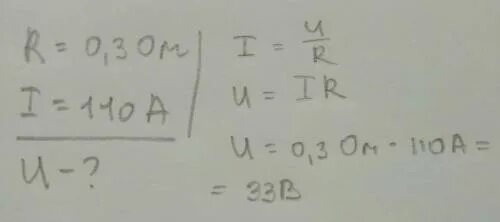 R = 0,3 Ом
I = 110 А
U - ?
I = U/R
U = IR
U = 0,3 Ом · 110 А =
= 33В